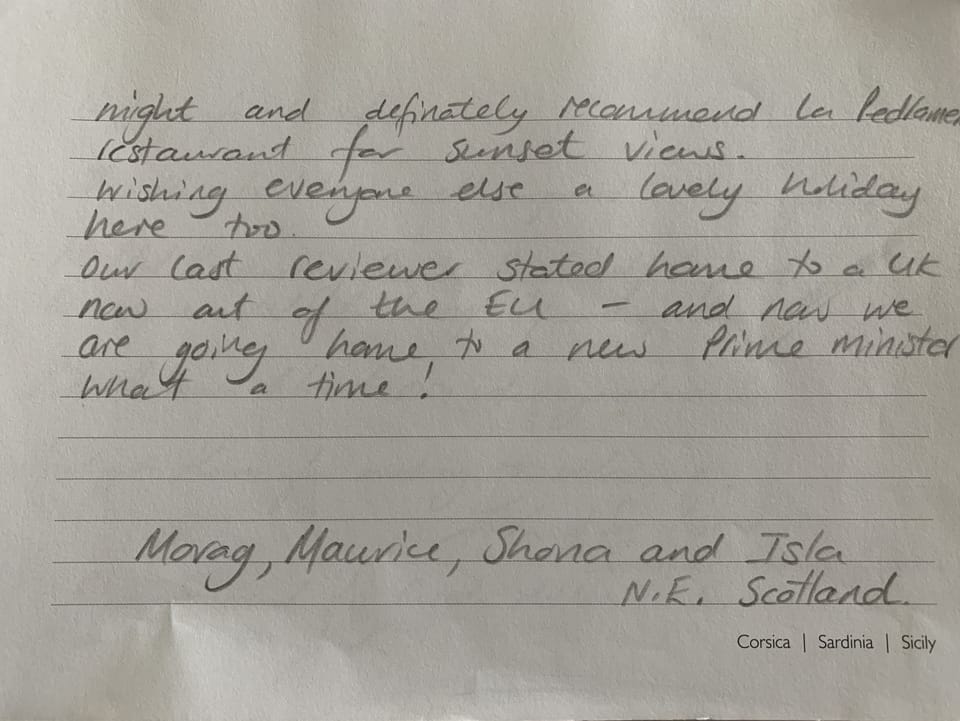 night and definately recommend La
restaurant for sunset views.
Wishing everyone else a lovely holiday
here too.
Our last reviewer stated home to a UK
now out of the EU – and now we
are going home to a new Prime minister
What a time!
Morag, Maurice, Shona and Isla
N.E. Scotland.
Corsica | Sardinia | Sicily